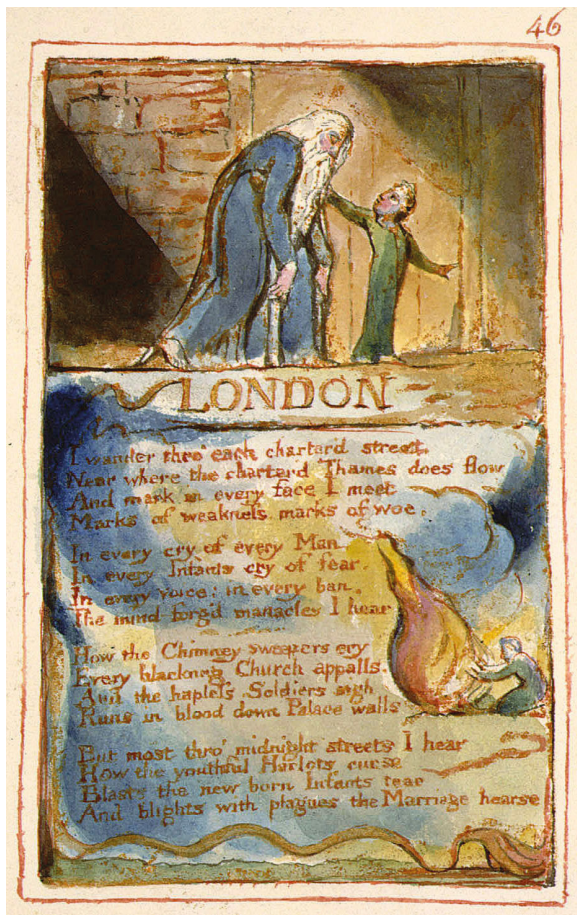 46
LONDON
I wander thro' each charterd street,
Near where the charterd Thames does flow
And mark in every face I meet
Marks of weakneſs marks of woe.
In every cry of every Man
In every Infants cry of fear.
In every voice; in every ban.
The mind forg'd manacles I hear
How the Chimney sweepers cry
Every blackning Church appalls.
And the hapleſs Soldiers sigh
Runs in blood down Palace walls
But most thro' midnight streets I hear
How the youthful Harlots curse
Blasts the new born Infants tear
And blights with plagues the Marriage hearse